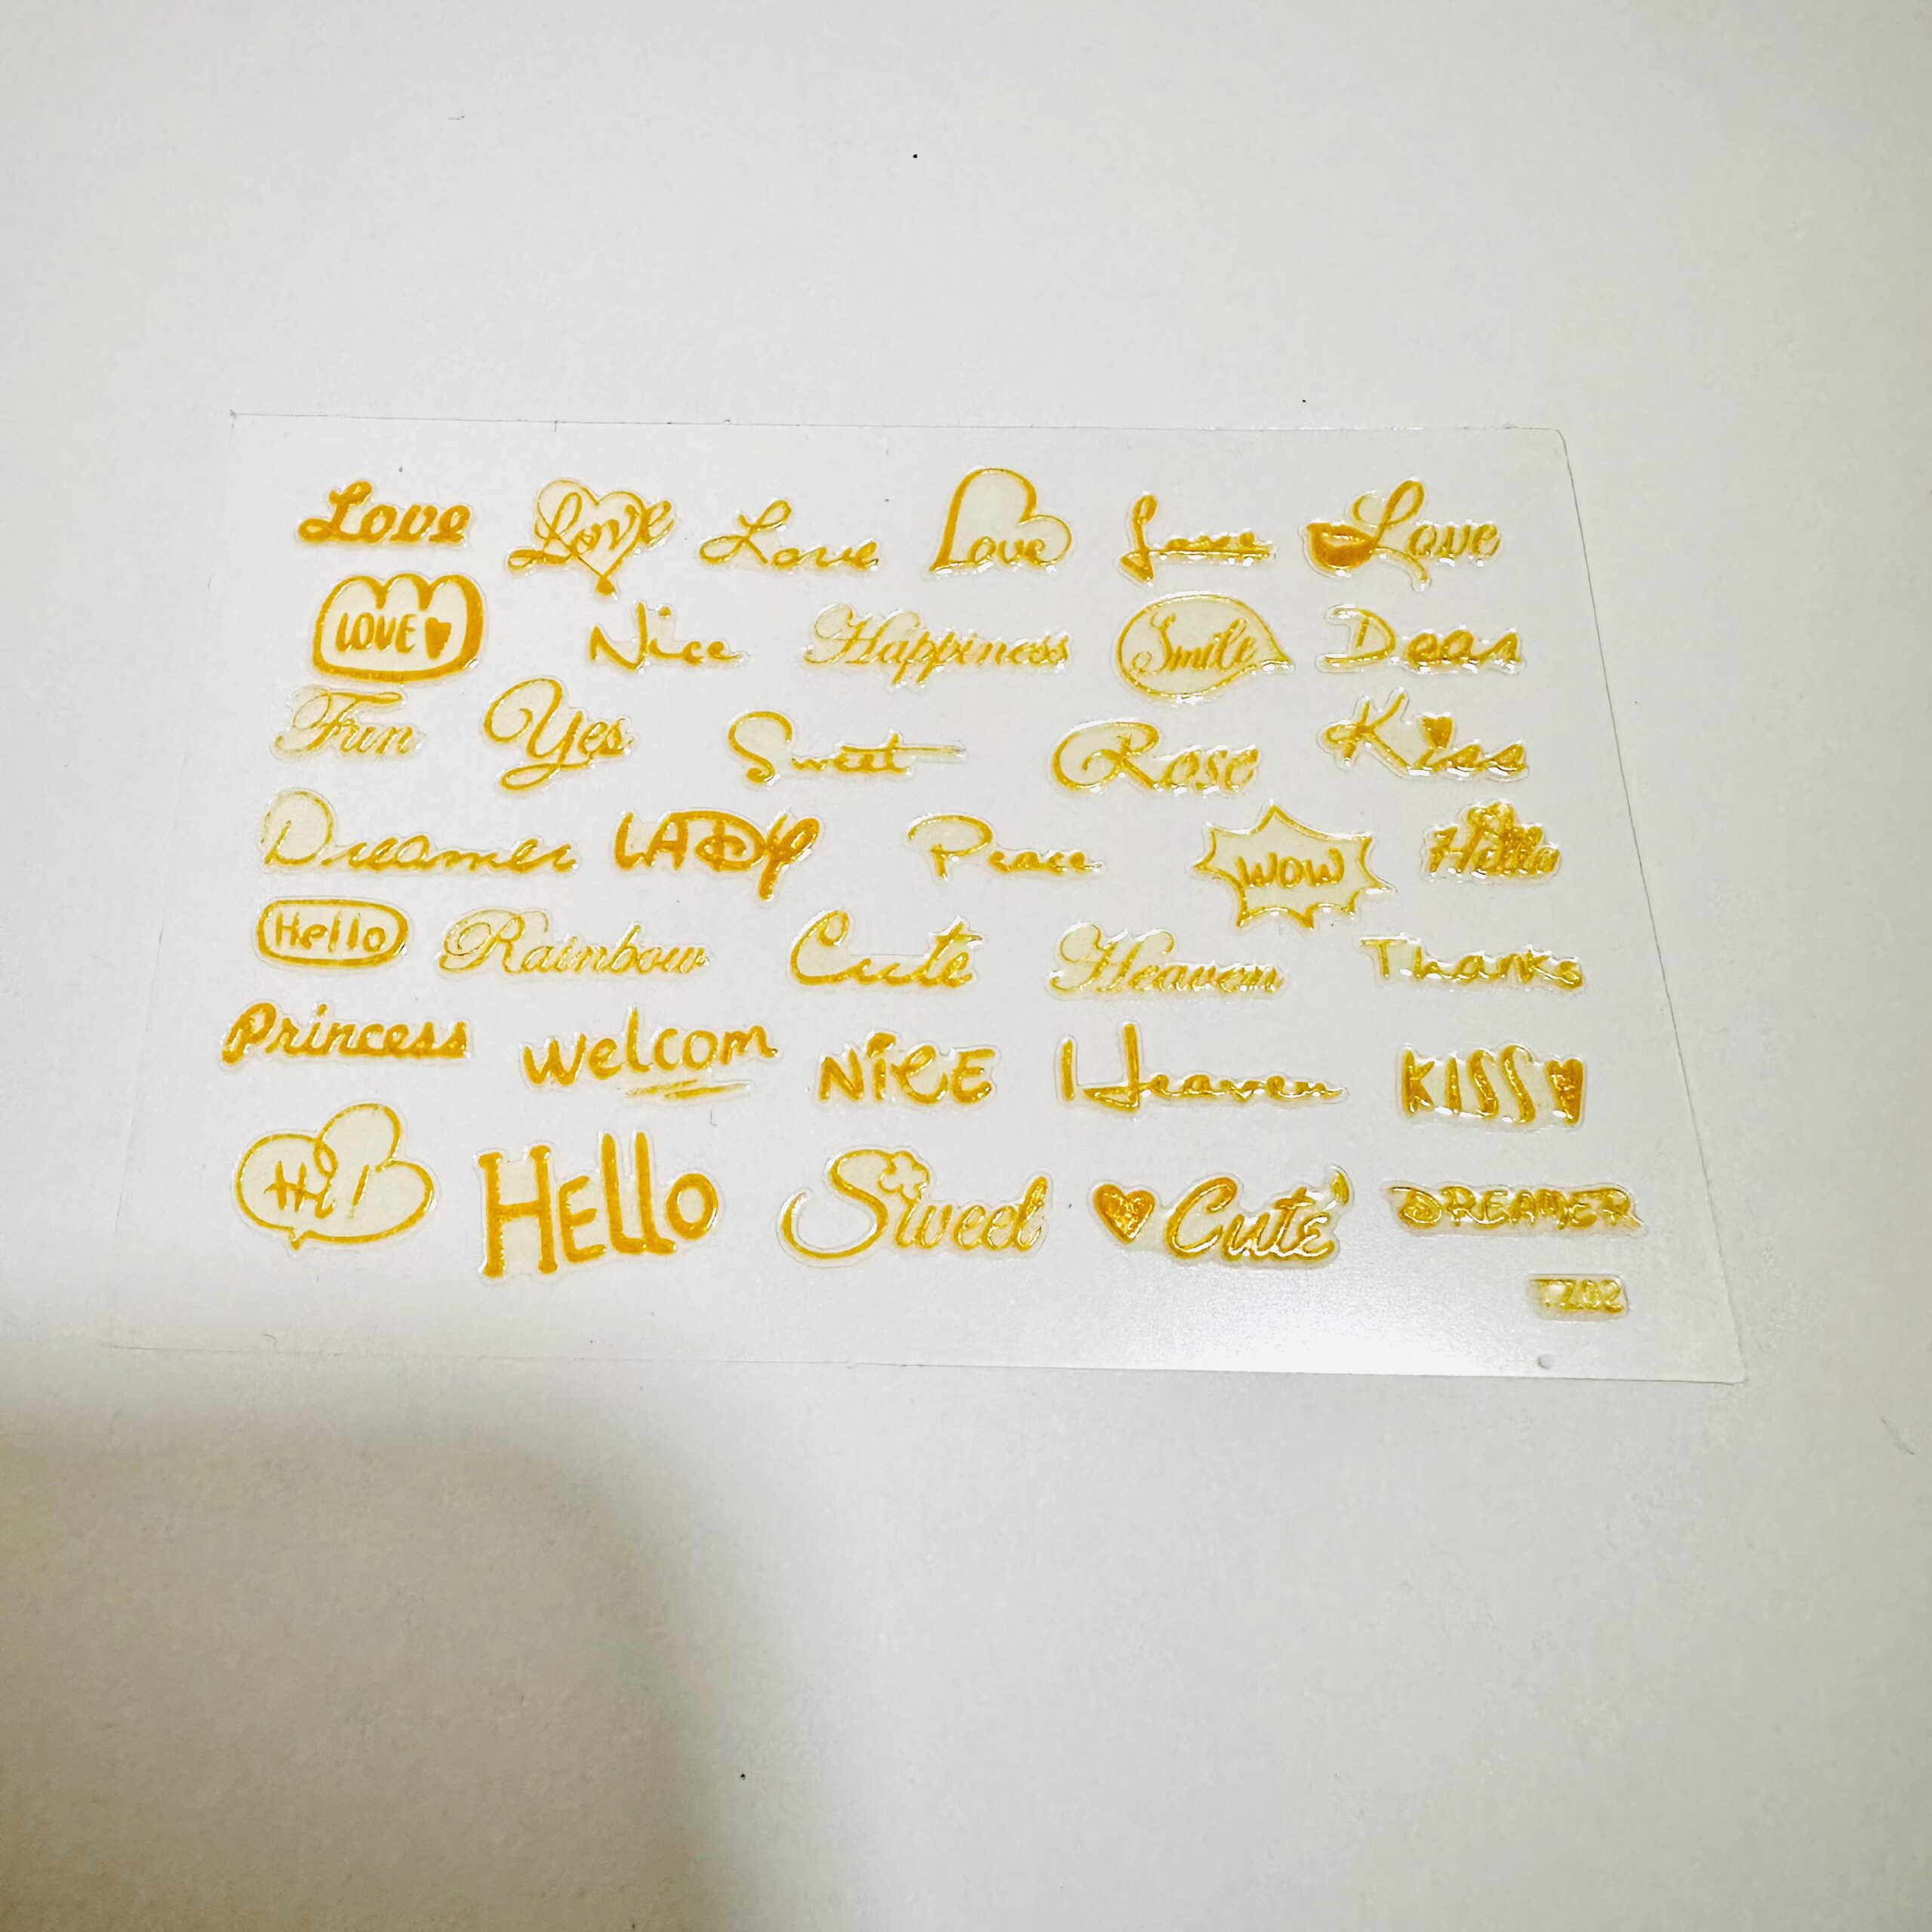 Love Love Love Love Love Love
LOVE Nice Happiness Smile Dear
Fun Yes Sweet Rose Kiss
Dreamer LADY Peace WOW Hello
Hello Rainbow Cute Heaven Thanks
Princess Welcom NiCE Heaven KISS
Hi! HEllo Sweet Cute DREAMER
TZ02